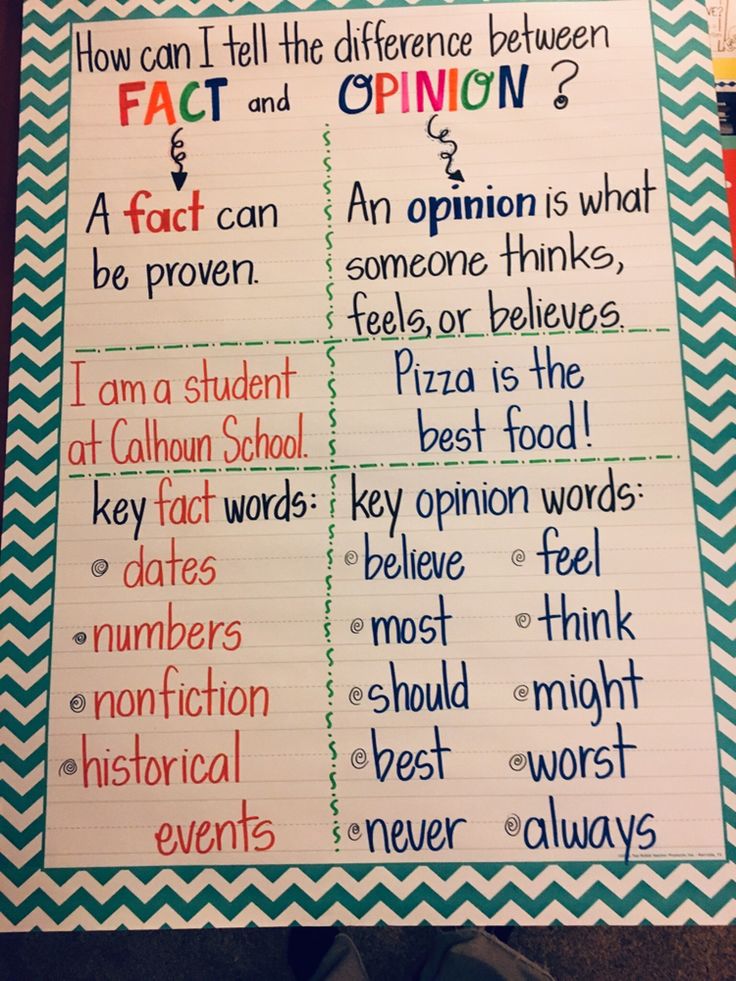 How can I tell the difference between
FACT and OPINION ?
A fact can
be proven.
An opinion is what
someone thinks,
feels, or believes.
I am a student
at Calhoun School.
Pizza is the
best food!
key fact words:
dates
numbers
nonfiction
historical
events
key opinion words:
believe feel
most think
should might
best worst
never always